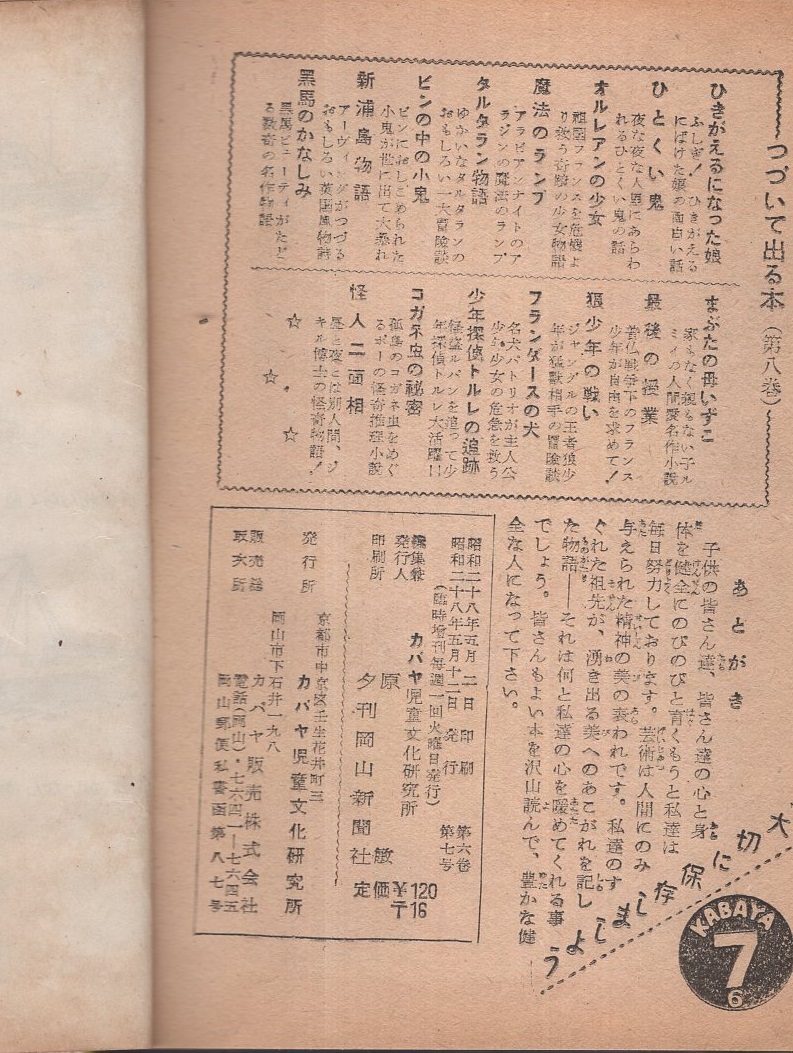 つづいて出る本（第八巻）
ひきがえるになった娘
ふしぎ！　ひきがえる
にばけた娘の面白い話
ひとくい鬼
夜な夜な人里にあらわ
れるひとくい鬼の話
オルレアンの少女
祖国フランスを危機よ
り救う奇蹟の少女物語
魔法のランプ
アラビアンナイトのア
ラジンの魔法のランプ
タルタラン物語
ゆかいなタルタランの
おもしろい一大冒険談
ビンの中の小鬼
ビンにおしこめられた
小鬼が世に出て大暴れ
新浦島物語
アーヴィングがつづる
おもしろい英国風物語
黒馬のかなしみ
黒馬ビューティがたど
る数奇の名作物語
まぶたの母いずこ
家もなく親もない子ル
ミイの人間愛名作小説
最後の授業
普仏戦争下のフランス
少年が自由を求めて！
狼少年の戦い
ジャングルの王者狼少
年が猛獣相手の冒険談
フランダースの犬
名犬パトリオが主人公
少年少女の危急を救う
少年探偵トルレの追跡
怪盗ルパンを追って少
年探偵トルレ大活躍！！
コガネ虫の秘密
孤島のコガネ虫をめぐ
るポーの怪奇推理小説
怪人二面相
昼と夜とは別人間、ジ
キル博士の怪奇物語！
☆　☆　☆
あとがき
子供の皆さん達、皆さん達の心と身
体を健全にのびのびと育くもうと私達は
毎日努力しております。芸術は人間にのみ
与えられた精神の美の表われです。私達のす
ぐれた祖先が、湧き出る美へのあこがれを記し
た物語――それは何と私達の心を暖めてくれる事
でしょう。皆さんもよい本を沢山読んで、豊かな健
全な人になって下さい。
大切に保存しましょう
KABAYA
7
6
昭和二十八年五月　二日　印刷
昭和二十八年五月十二日　発行
第六巻
第七号
（臨時増刊毎週一回火曜日発行）
編集兼
発行人
カバヤ児童文化研究所
原　敏
印刷所
夕刊岡山新聞社
定価￥120
〒16
発行所
京都市中京区壬生花井町三
カバヤ児童文化研究所
販売兼
取次所
岡山市下石井一九八
カバヤ販売株式会社
電話（岡山）・七六四一―七六四五
岡山郵便私書函第八七号